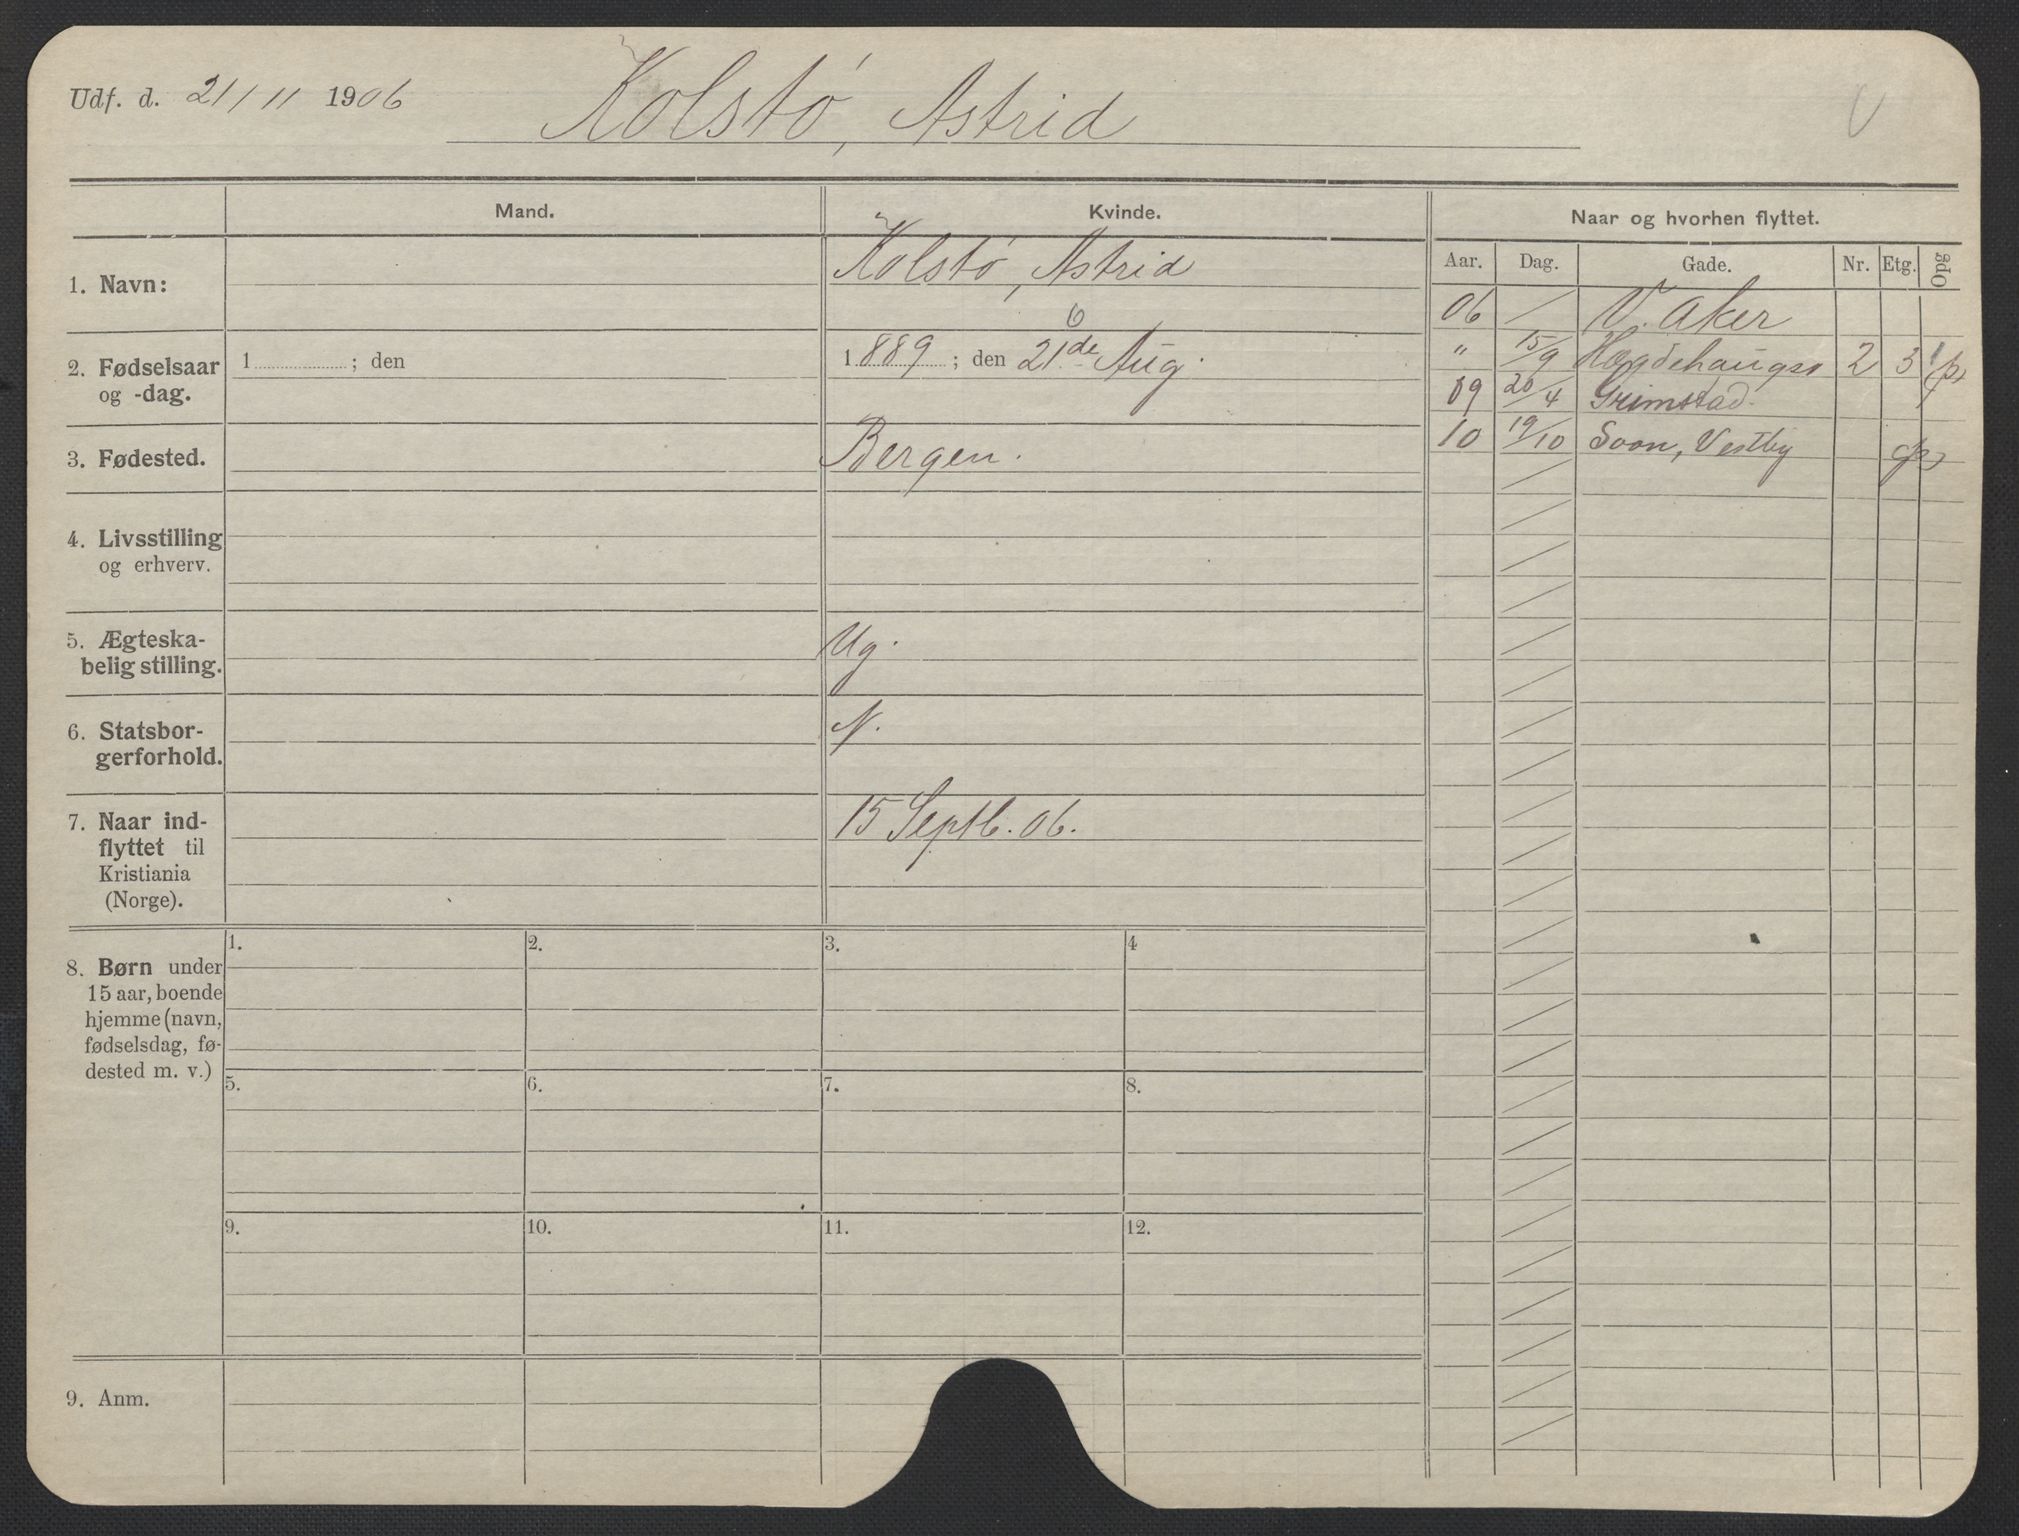 Udf. d. 21/11 1906 Kolstø, Astrid
Mand. Kvinde. Naar og hvorhen flyttet.
Aar. Dag. Gade. Nr. Etg. Opg
1. Navn: Kolstø, Astrid
06 V. Aker
2. Fødselsaar og -dag. 1 ; den 1889 ; den 21de Aug.
" 15/9 Hægdehaugsv 2 3
09 20/4 Grimstad
10 19/10 Soon, Vestby
3. Fødested. Bergen.
4. Livsstilling
og erhverv.
5. Ægteska-
belig stilling. Ug.
6. Statsbor-
gerforhold. N.
7. Naar ind-
flyttet til
Kristiania
(Norge). 15 Septb. 06.
8. Børn under
15 aar, boende
hjemme (navn,
fødselsdag, fø-
dested m. v.)
1. 2. 3. 4
5. 6. 7. 8.
9. 10. 11. 12.
9. Anm.